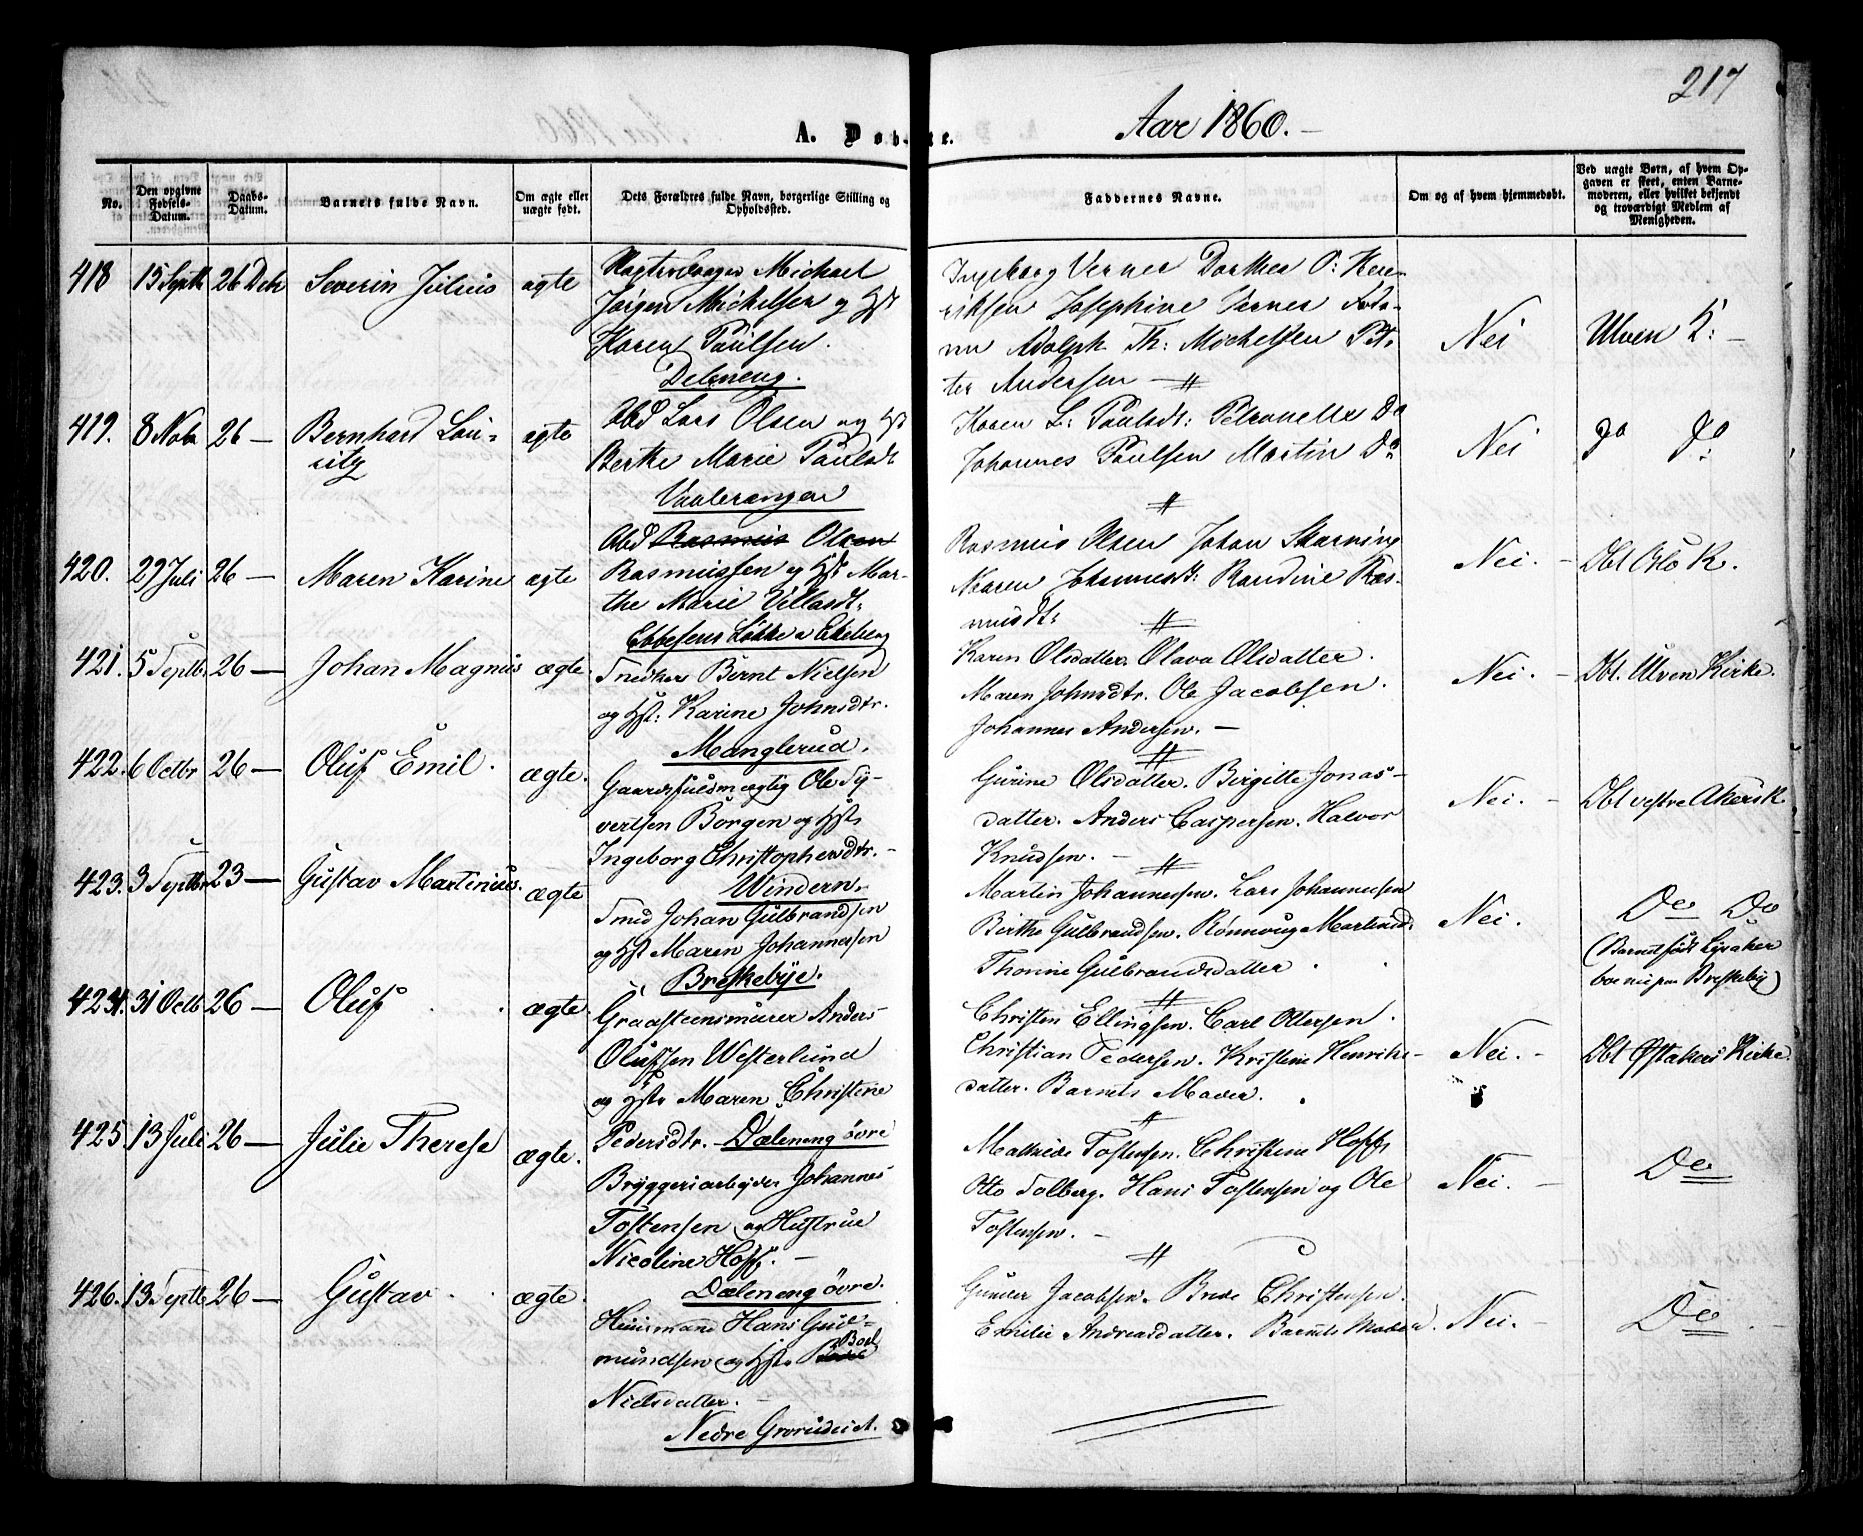 217
Aar 1860.
A. Døbte.
No.
Den opgivne Fødsels-Datum.
Daabs-Datum.
Barnets fulde Navn.
Om ægte eller uægte født.
Dets Forældres fulde Navn, borgerlige Stilling og Opholdssted.
Faddernes Navne.
Om og af hvem hjemmedøbt.
Ved uægte Børn, af hvem Opgaven er skeet, enten Barnemoderen, eller hvilket bekjendt og troværdigt Medlem af Menigheden.
418 15 Septb 26 Debr Severin Julius ægte
Michael
Jørgen Michelsen og Hst
Karen Paulsen.
Deleneng.
Ingeborg Verner Dorthea O: Hen-
riksen Josephine Verner
Adolph Th: Michelsen Pet-
ter Andersen
Nei
Ulven K:
419. 8 Novb 26 — Bernhard Lau-
ritz
ægte
Abd Lars Olsen og Hst
Berthe Marie Paulsdt
Vaalerengen
Karen L: Paulsdt: Petronelle Do
Johannes Paulsen Martin Do
Nei
Do Do
420. 29 Juli 26 — Maren Karine ægte
Abd Rasmus Olsen
Rasmussen og Hst Mar-
the Marie
Ebbesens Løkke v Ekeberg
Rasmus Olsen Johan
Maren Johannesdt: Randine Ras-
musdt:
Nei. — Dbt Oslo K.
421. 5 Septb. 26 — Johan Magnus ægte.
Snedker Bernt Nielsen
og Hst: Karine Johnsdtr.
Manglerud.
Karen Olsdatter. Olava Olsdatter.
Maren Johnsdtr. Ole Jacobsen.
Johannes Andersen. —
Nei. — Dbt. Ulven Kirke.
422. 6 Octbr 26 — Oluf Emil. ægte.
Gaardsfuldmægtig Ole Sy-
vertsen Borgen og Hst.
Ingeborg Christophersdtr. —
Windern.
Gurine Olsdatter. Birgitte Jonas-
datter. Anders Caspersen. Halvor
Knudsen. —
Nei. — Dbt vestre Akers K.
423. 3 Septbr 23 — Gustav Martinius. ægte
Smed Johan Gulbrandsen
og Hst Maren Johannessen
Breskebye.
Martin Johannessen. Lars Johannessen
Birthe Gulbrandsen. Rønnoug Martinsd.
Thorine Gulbrandsdatter
Nei.
Do Do
(Barnet født Lysaker
Breskeby)
424. 31 Octb 26 — Oluf ægte.
Graasteensmurer Anders
Olufsen Westerlund
og Hst. Maren Christine
Pedersdtr. — Dæleneng øvre
Christen Ellingsen. Carl Ottersen.
Christian Pedersen. Kristine Henriks-
datter. Barnets Moder.
Nei. — Dbt Østakers Kirke.
425 13 Juli 26 — Julie Therese ægte.
Bryggeriarbejder Johannes
Tostensen og Hustrue
Nicoline Hoff. —
Dæleneng øvre.
Mathilde Tostensen. Christine Hoff.
Otto Solberg. Hans Tostensen og Ole
Tostensen. —
Nei. — Do
426. 13 Septb. 26 — Gustav ægte.
Huusmand Hans Gud-
mundsen og Hst.
Nielsdatter. —
Nedre Grorudeie A.
Gunder Jacobsen. Brede Christensen.
Emilie Andreasdatter. Barnets Moder.
Nei. — Do